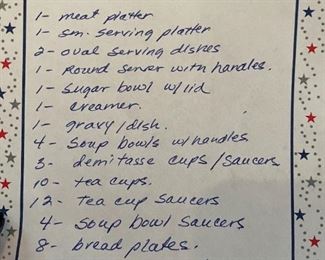 1- meat platter
1- sm. serving platter
2- oval serving dishes
1- Round server with handles.
1- Sugar bowl w/lid
1- creamer.
1- gravy/dish.
4- Soup bowls w/handles
3- demitasse cups/saucers
10- tea cups.
12- Tea cup saucers
4- Soup bowl saucers
8- bread plates.